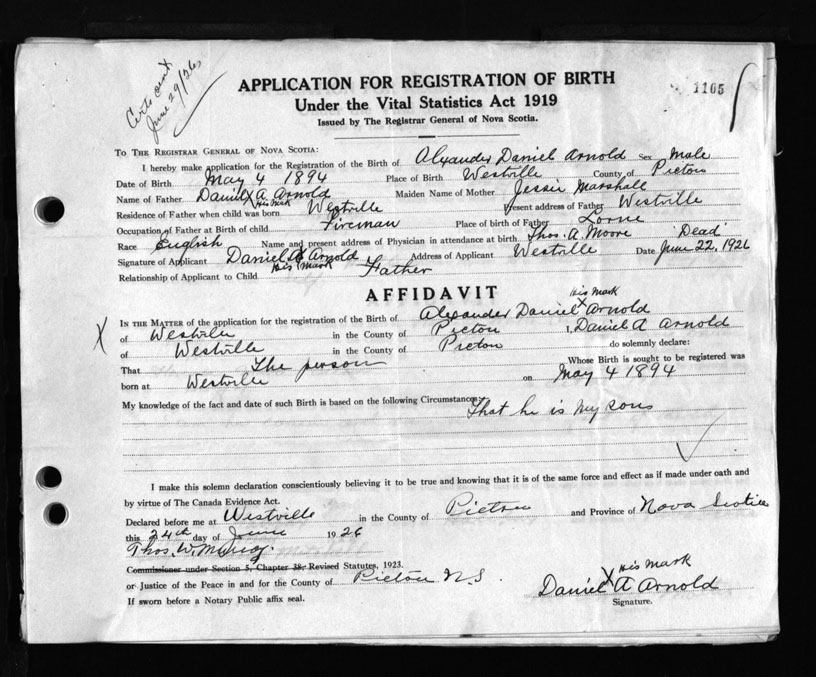 Certs sent
June 29/26
APPLICATION FOR REGISTRATION OF BIRTH
1105
Under the Vital Statistics Act 1919
Issued by The Registrar General of Nova Scotia.
TO THE REGISTRAR GENERAL OF NOVA SCOTIA:
I hereby make application for the Registration of the Birth of Alexander Daniel Arnold Sex Male
Date of Birth May 4 1894 Place of Birth Westville County of Pictou
Name of Father Daniel X A Arnold Maiden Name of Mother Jessie Marshall
His Mark
Residence of Father when child was born Westville Present address of Father Westville
Occupation of Father at Birth of child Fireman Place of birth of Father Lorne
Race English Name and present address of Physician in attendance at birth Thos. A. Moore Dead
Signature of Applicant Daniel X A Arnold Address of Applicant Westville Date June 22, 1926
His Mark
Relationship of Applicant to Child Father
AFFIDAVIT
His Mark
IN THE MATTER of the application for the registration of Birth of Alexander Daniel Arnold
X of Westville in the County of Pictou I, Daniel X A Arnold
of Westville in the County of Pictou do solemnly declare:
That The person Whose Birth is sought to be registered was
born at Westville on May 4 1894
My knowledge of the fact and date of such Birth is based on the following Circumstances:
That he is my son
I make this solemn declaration conscientiously believing it to be true and knowing that it is of the same force and effect as if made under oath and
by virtue of The Canada Evidence Act.
Declared before me at Westville in the County of Pictou and Province of Nova Scotia
this 24th day of June 1926
Thos. W.
Commissioner under Section 5, Chapter 38, Revised Statutes, 1923.
or Justice of the Peace in and for the County of Pictou N.S.
His Mark
Daniel X A Arnold
If sworn before a Notary Public affix seal.
Signature.